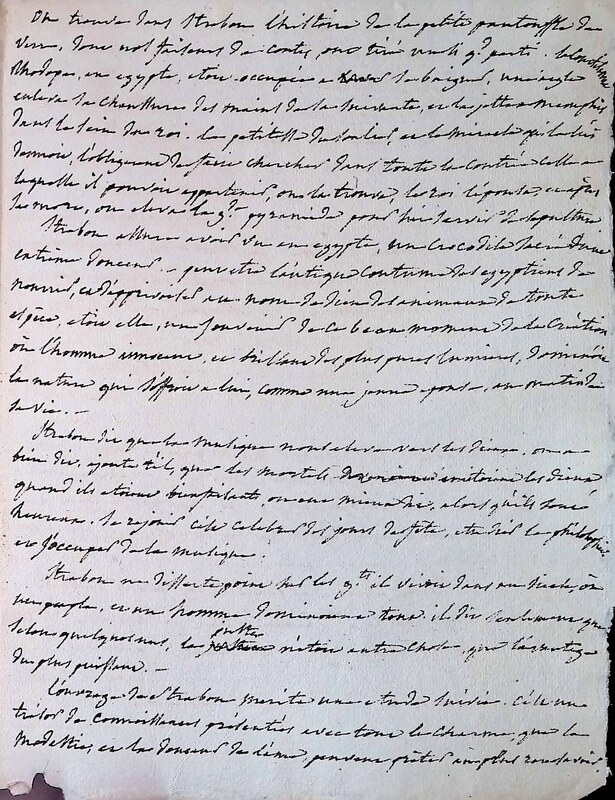 On trouve dans Strabon l'histoire de la petite pantouffle de
verre, dont nos faiseurs de contes, ont tiré un si gd parti. la Courtisane
Rhodope, en egypte, etoit occupée a se baigner, un aigle
enleva sa chaussure des mains de la suivante, et la jetta a Memphis
dans le sein du roi. la petitesse du soulier, et le miracle qui le lui
donnoit, l'obligerent de faire chercher dans toute la contrée celle a
laquelle il pouvoit appartenir, on la trouva, le roi l'épousa, et après
sa mort, on eleva la gde pyramide pour lui servir de sepulture
Strabon assure avoir vu en egypte, un Crocodile sacré d'une
extrême douceur. – peut etre l'antique coutume des egyptiens de
nourrir, et d'apprivoiser au nom de dieu des animaux de toute
espèce, etoit elle, un souvenir de ce beau moment de la Création
où l'homme innocent, et brillant des plus pures lumieres, dominoit
la nature qui s'offroit a lui, comme une jeune epouse, au matin de
sa vie. –
Strabon dit que la musique nous eleve vers les dieux. on a
bien dit, ajoute t'il, que les mortels imitoient les dieux
quand ils etoient bienfaisants, on eut mieux dit, alors qu'ils sont
heureux. se rejouir c'est celebrer des jours de fête, etudier la philosophie
et s'occuper de la musique.
Strabon ne disserte point sur les gdts il vivoit dans un siecle, où
un peuple, et un homme dominoient tout, il dit seulement que
selon quelques uns, le juste n'etoit autre chose, que l'avantage
du plus puissant. –
L'ouvrage de Strabon merite une etude suivie. c'est un
trésor de connoissances présentées avec tout le charme, que la
modestie, et la douceur de l'âme, peuvent prêter au plus rare savoir.